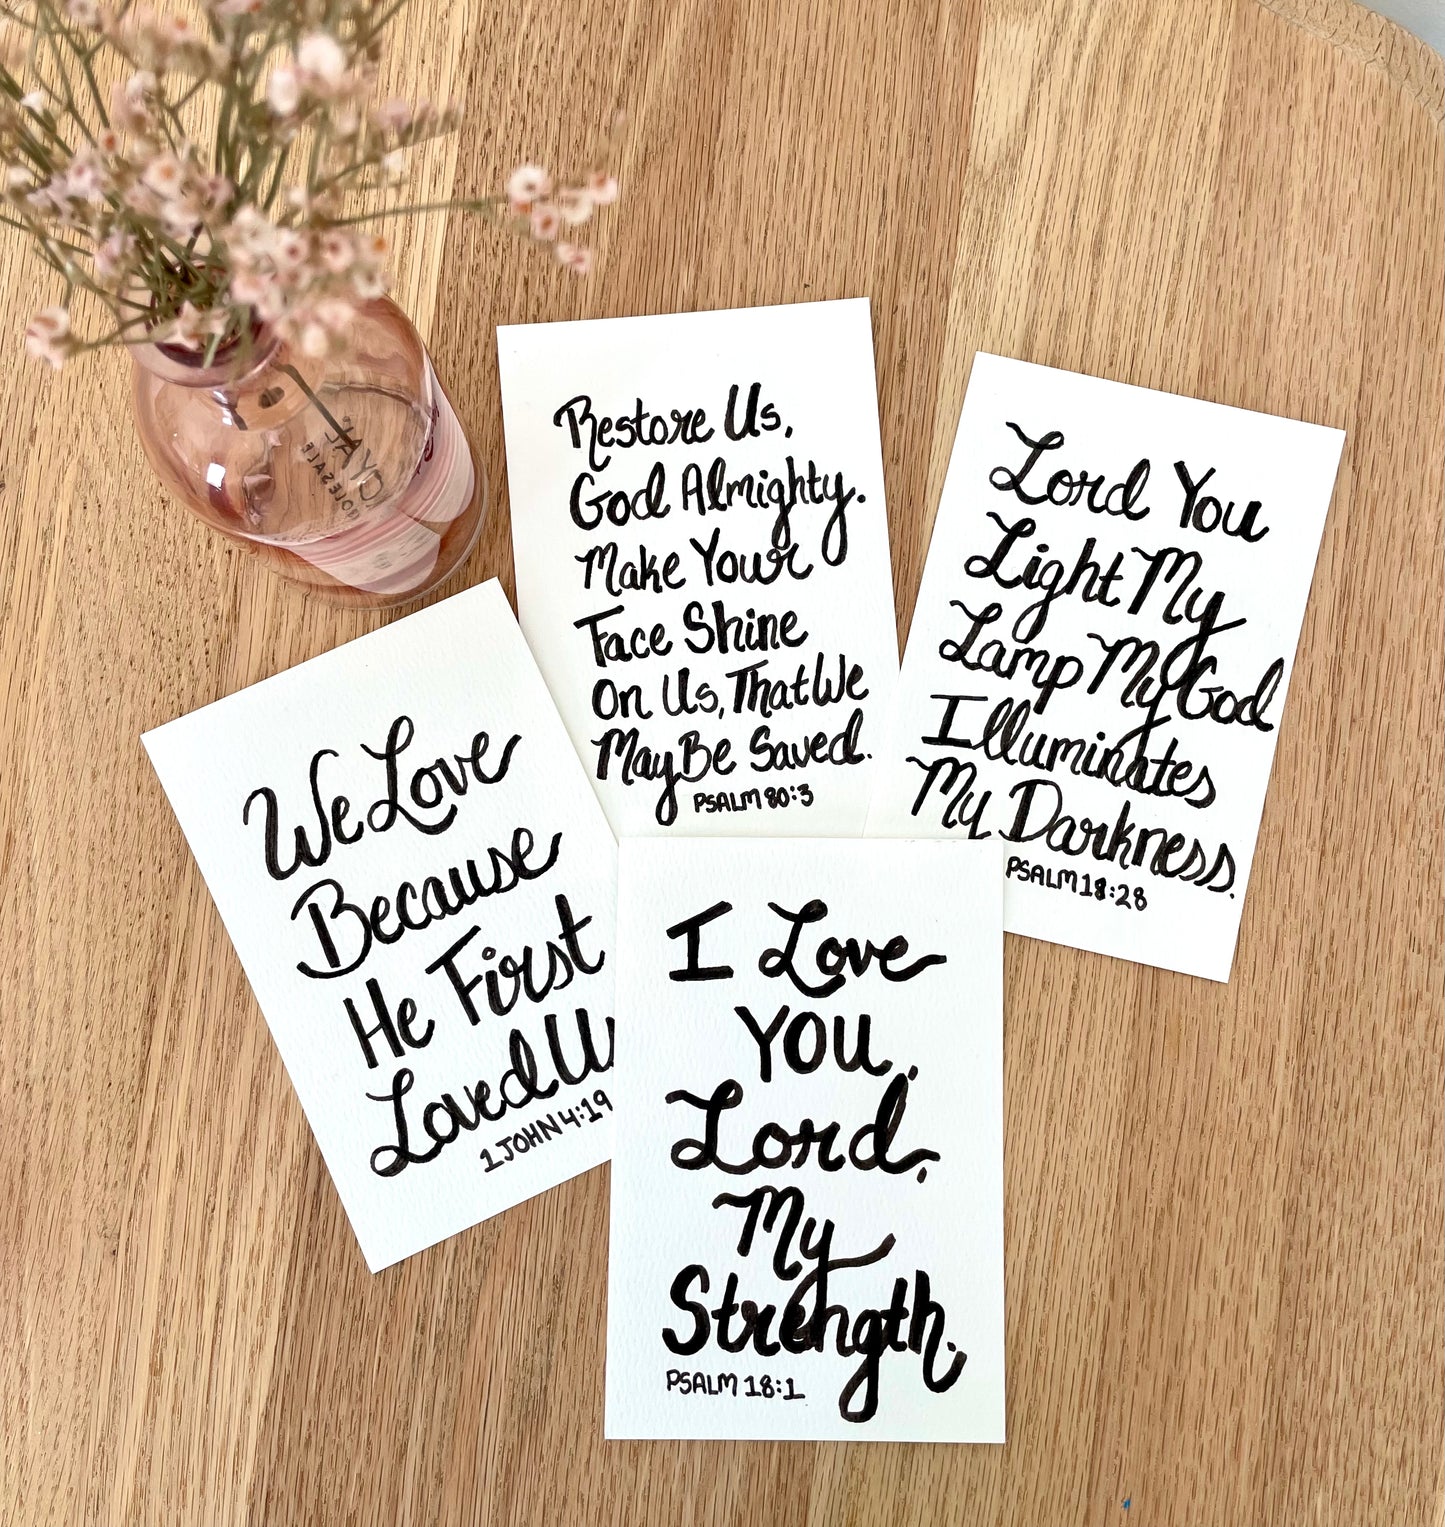 Restore Us,
God Almighty.
Make Your
Face Shine
On Us, That We
May Be Saved.
PSALM 80:3
Lord You
Light My
Lamp My God
Illuminates
My Darkness.
PSALM 18:28
We Love
Because
He First
Loved U
1 JOHN 4:19
I Love
YOU,
Lord,
My
Strength.
PSALM 18:1